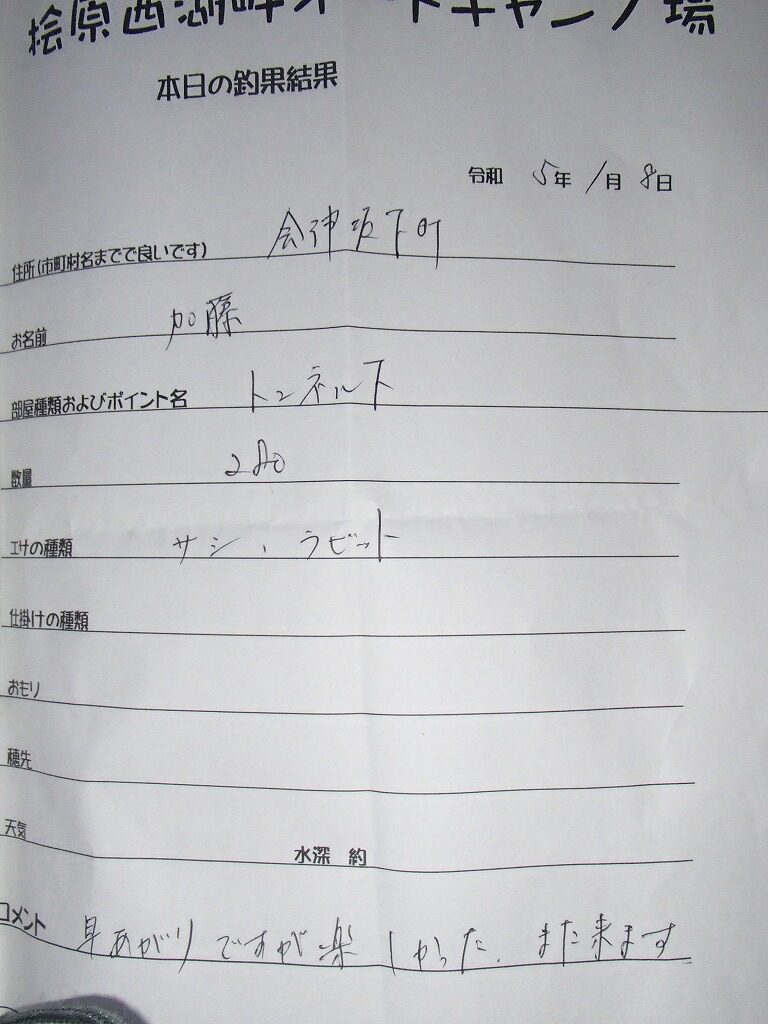 桧原西湖畔オートキャンプ場
本日の釣果結果
令和 5年 1月 8日
住所(市町村名までで良いです) 会津坂下町
お名前 加藤
部屋種類およびポイント名 トンネル下
数量 280
エサの種類 サシ、ラビット
仕掛けの種類
おもり
穂先
天気 水深 約
コメント 早あがりですが楽しかった、また来ます